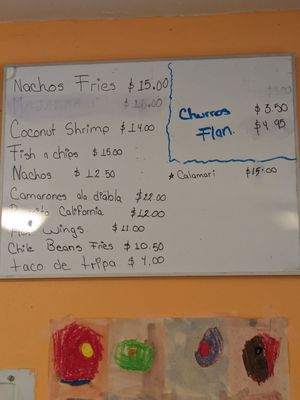 Nachos Fries $15.00
Coconut Shrimp $14.00
Fish n chips $15.00
Nachos $12.50
Camarones ala diabla $22.00
Burrito California $12.00
Wings $11.00
Chile Beans Fries $10.50
taco de tripa $4.00
Churros $3.50
Flan. $4.95
★ Calamari $15.00